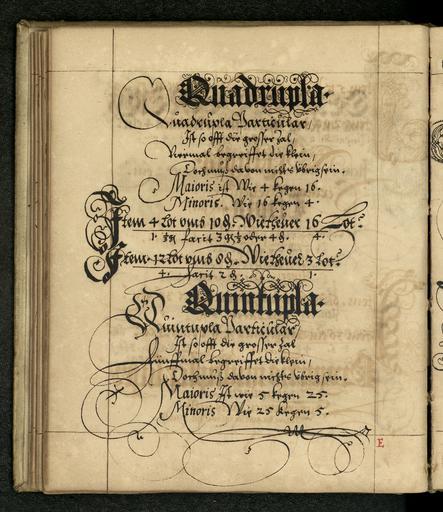 Quadrupla.
Quadrupla Particular/
Ist so offt die grosser zal,
Viermal begreiffet die klein,
Doch muß davon nichts übrig sein.
Maioris ist Wie 4 kegen 16.
Minoris. Wie 16 kegen 4.
Item 4 Lot vmb 10 Wie theuer 16 Lot.
1. facit 3 oder 4 4.
Item 12 lot vmb 8 Wie theuer 3 lot.
4. facit 2 1.
Quintupla.
Quintupla Particular/
Ist so offt die grosser zal
Fünffmal begreiffet die klein,
Doch muß davon nichts übrig sein.
Maioris Ist wie 5 kegen 25.
Minoris Wie 25 kegen 5.
E